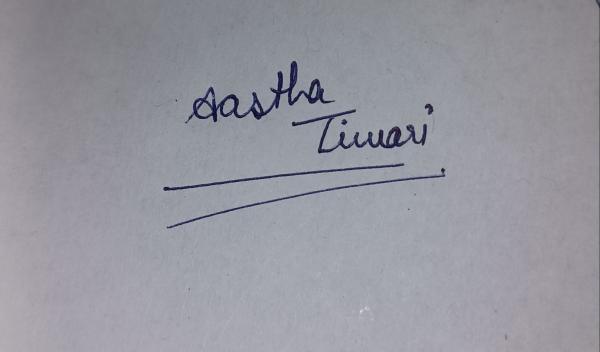 Aastha
Tiwari